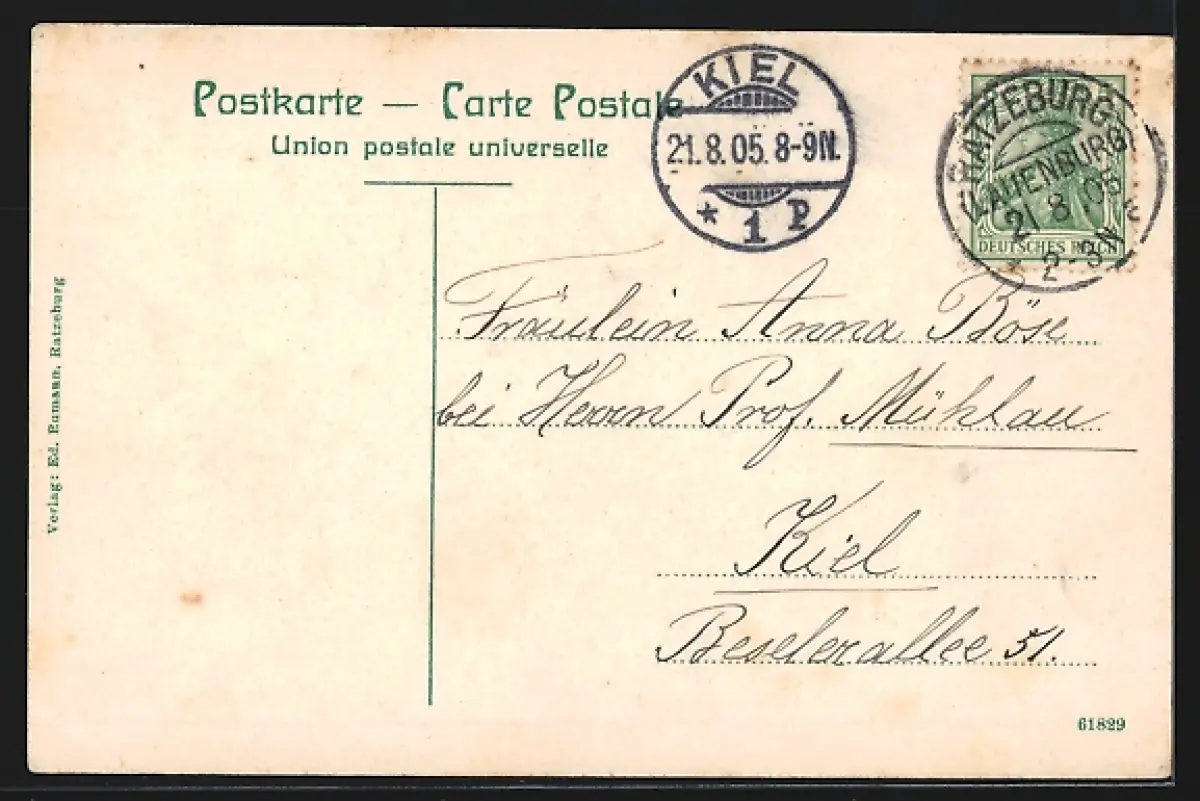 Postkarte — Carte Postale
Union postale universelle
KIEL
21.8.05. 8-9N.
* 1 P
RATZEBURG
(LAUENBURG)
21.8.05
2-3N
DEUTSCHES REICH
Fräulein Anna Böse
bei Herrn Prof. Mühlau
Kiel
Beselerallee 51.
Verlag: Ed. Rumann, Ratzeburg
61829